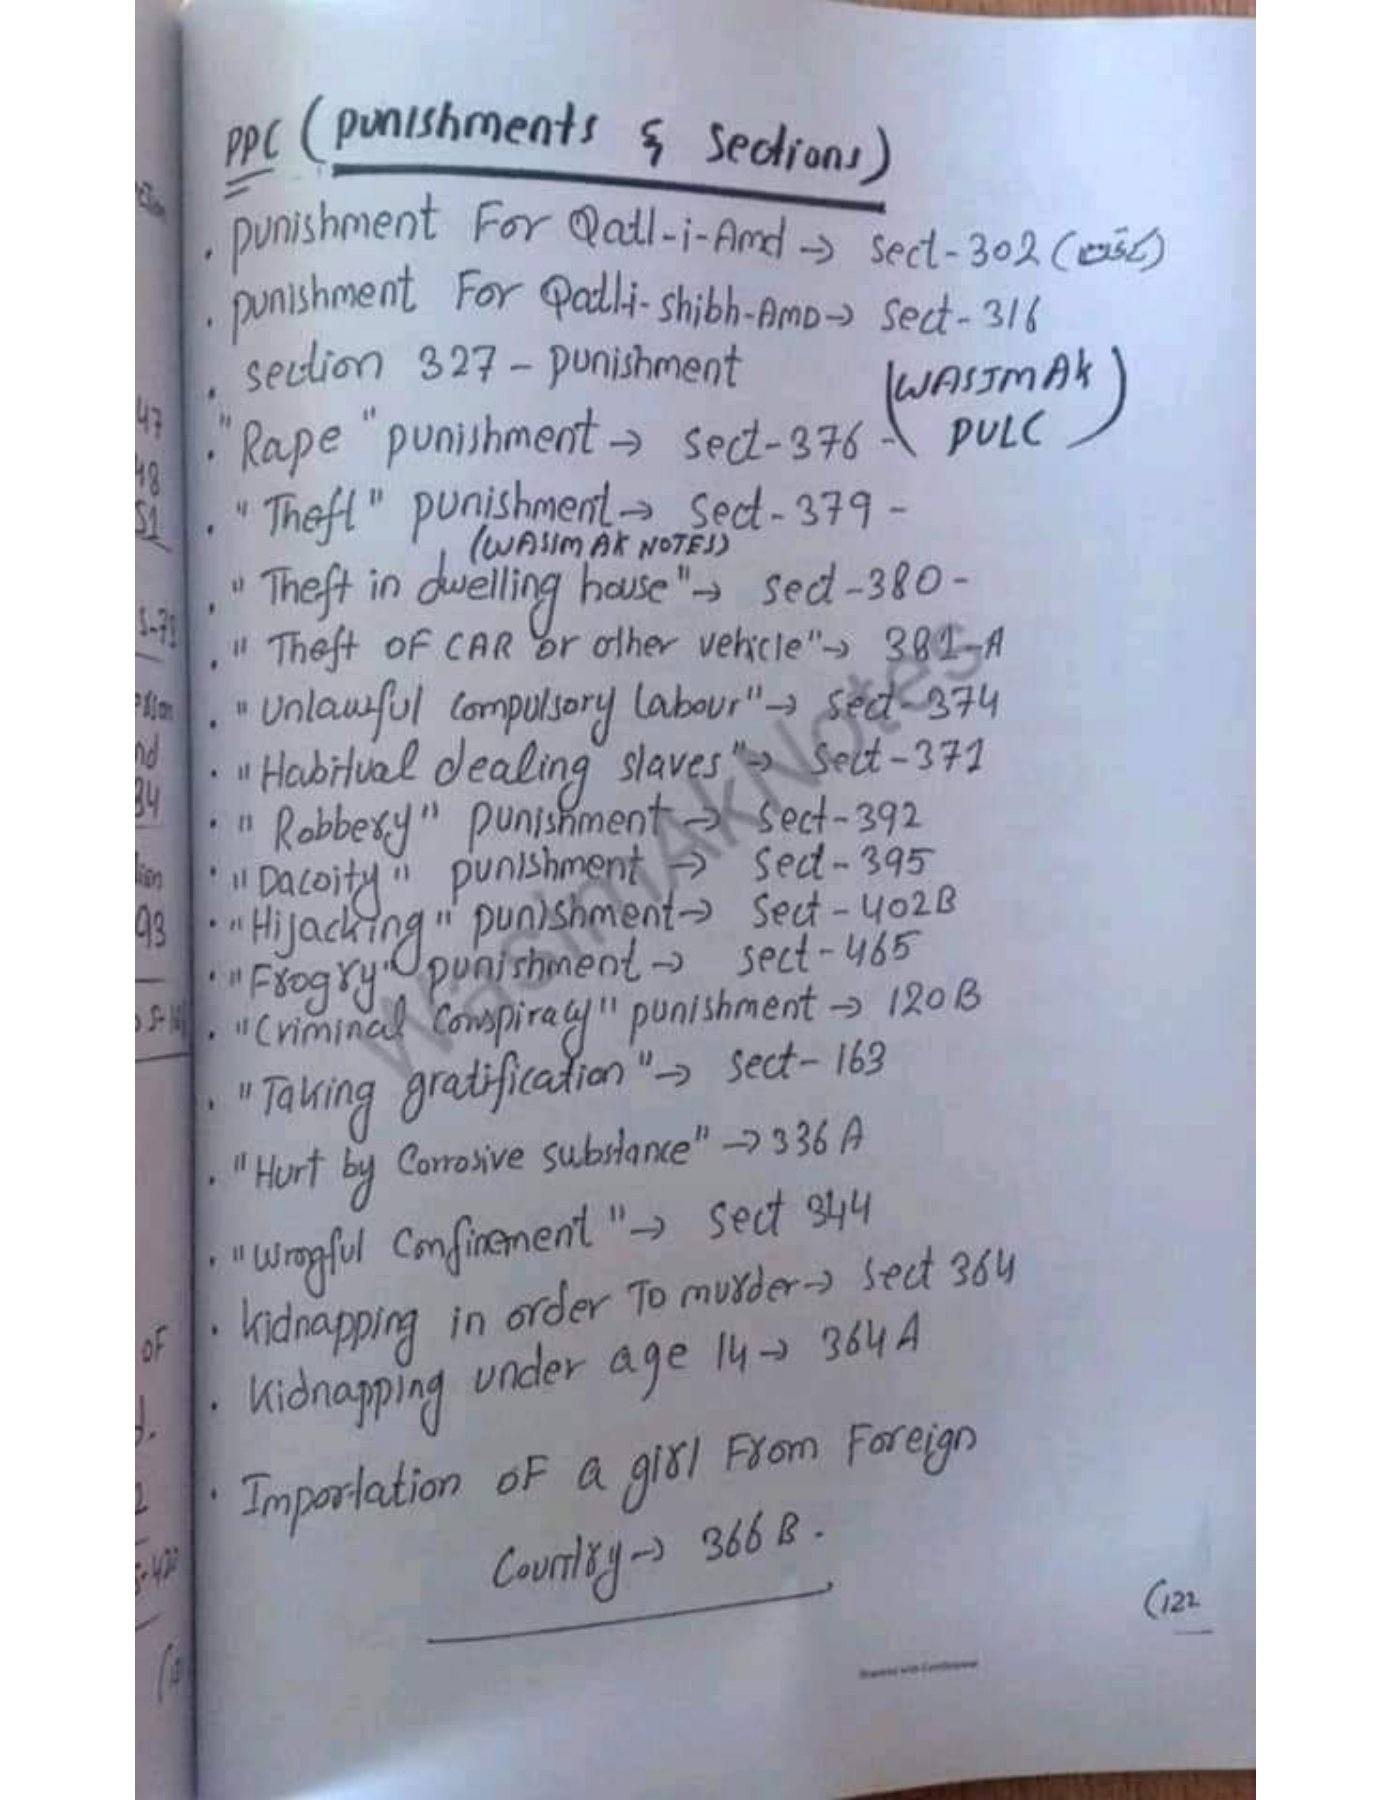 PPC (punishments & Sections)
. punishment For Qatl-i-Amd → sect-302
. punishment For Qatl-i-shibh-AMD → sect-316
. section 327 - punishment
(WASIM AK
PULC)
. "Rape" punishment → sect-376 -
. "Theft" punishment → sect-379 -
(WASIM AK NOTES)
. "Theft in dwelling house" → sect-380 -
. "Theft OF CAR or other vehicle" → 381-A
. "Unlawful compulsory labour" → sect-374
. "Habitual dealing slaves" → sect-371
. "Robbery" punishment → sect-392
. "Dacoity" punishment → sect-395
. "Hijacking" punishment → sect-402B
. "Frogry" punishment → sect-465
. "Criminal Conspiracy" punishment → 120B
. "Taking gratification" → sect-163
. "Hurt by Corrosive substance" → 336 A
. "Wrogful Confinement" → sect 344
. Kidnapping in order To murder → sect 364
. Kidnapping under age 14 → 364 A
. Importation OF a girl From Foreign
Country → 366 B.
(122
WasimAkNotes
47
48
51
S-79
nd
34
93
OF